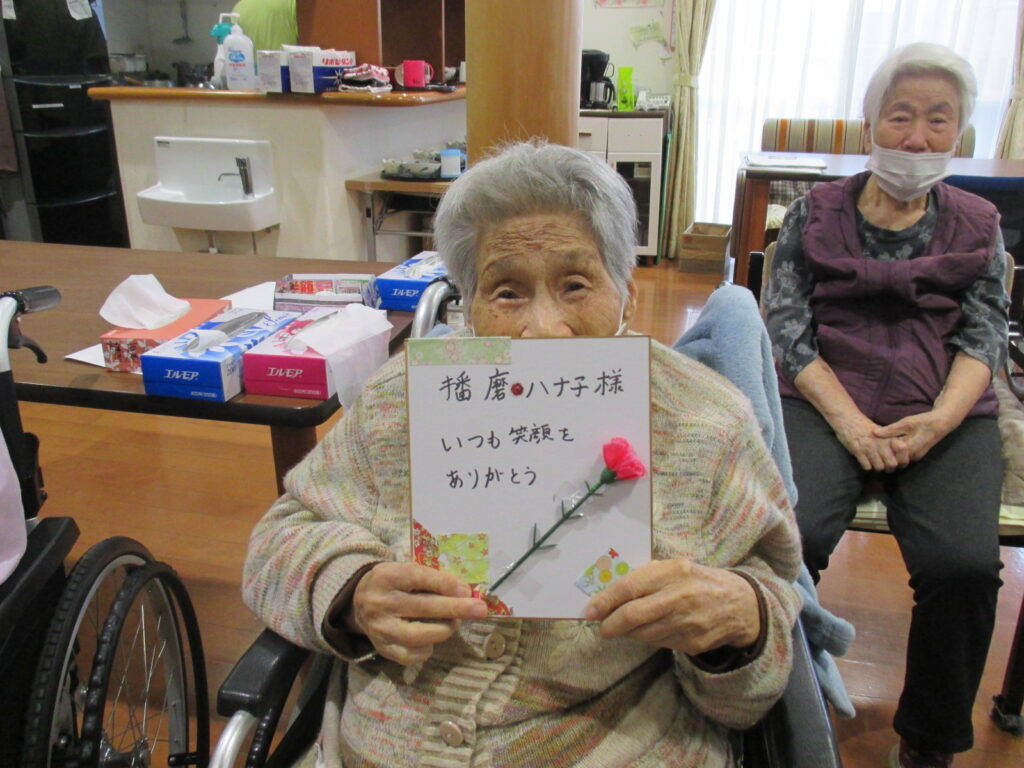 播磨ハナ子様
いつも笑顔を
ありがとう
エルモア
エルモア